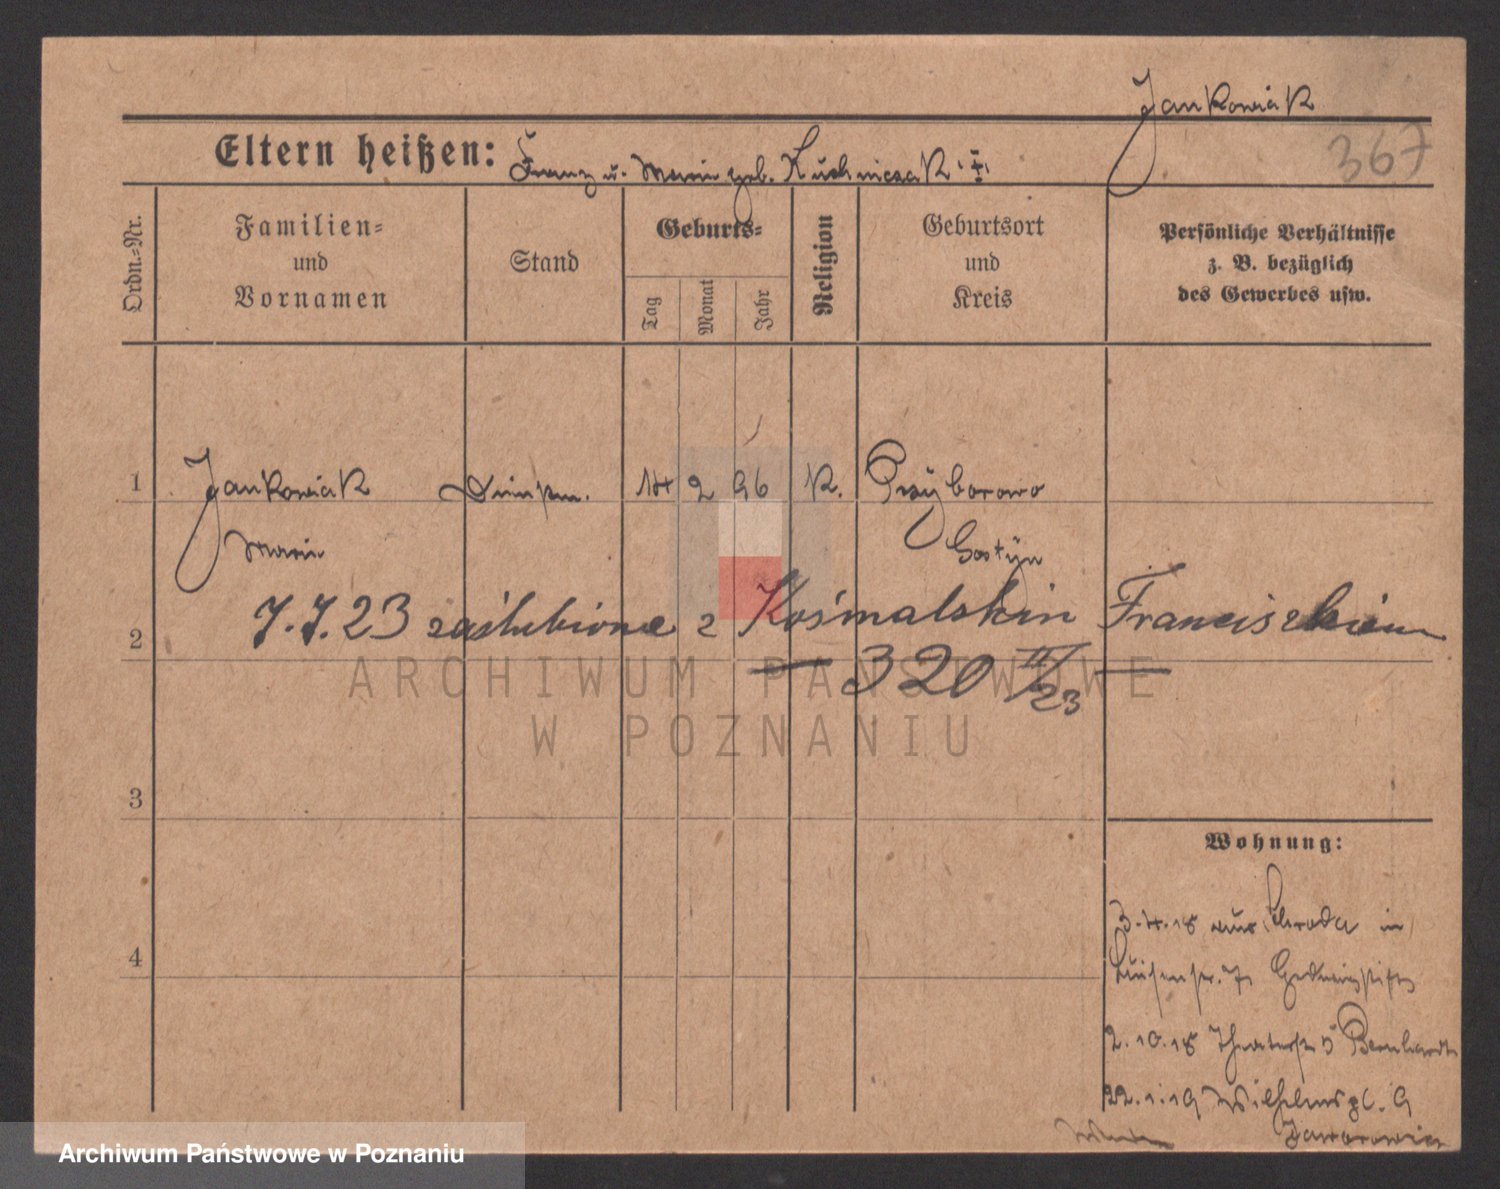 Jankowiak
367
Eltern heißen: Franz u. Marie geb. Kuchniczak
Ordn.-Nr.
Familien-
und
Vornamen
Stand
Geburts-
Tag
Monat
Jahr
Religion
Geburtsort
und
Kreis
Persönliche Verhältnisse
z. B. bezüglich
des Gewerbes usw.
1 Jankowiak 14 2 96 K. Przyborowo
Marie Gostyn
2 7.7.23 zaślubiona z Kośmalskim Franciszkiem
— 320 II/23 —
3
4
Wohnung:
3.4.18 aus Schroda in
Luisenstr. 7 Hedwigstift
2.10.18 Theaterstr 5 Bernhardt
22.1.19 Wilhelmspl. 9
ARCHIWUM PAŃSTWOWE
W POZNANIU
Archiwum Państwowe w Poznaniu